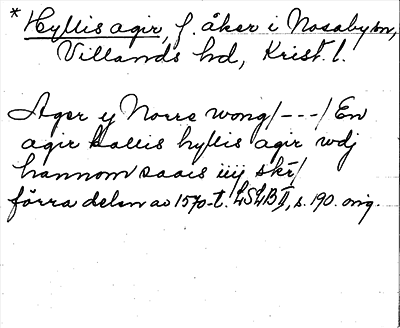 * Hyllis agir, f. åker i Nosaby sn,
Villands hd, Krist. l.
Ager y Norre wong/---/En
agir kallis hyllis agir wdj
hannom saais iiij skr/
förra delen av 1570-t. LSLB II, s. 190. orig.